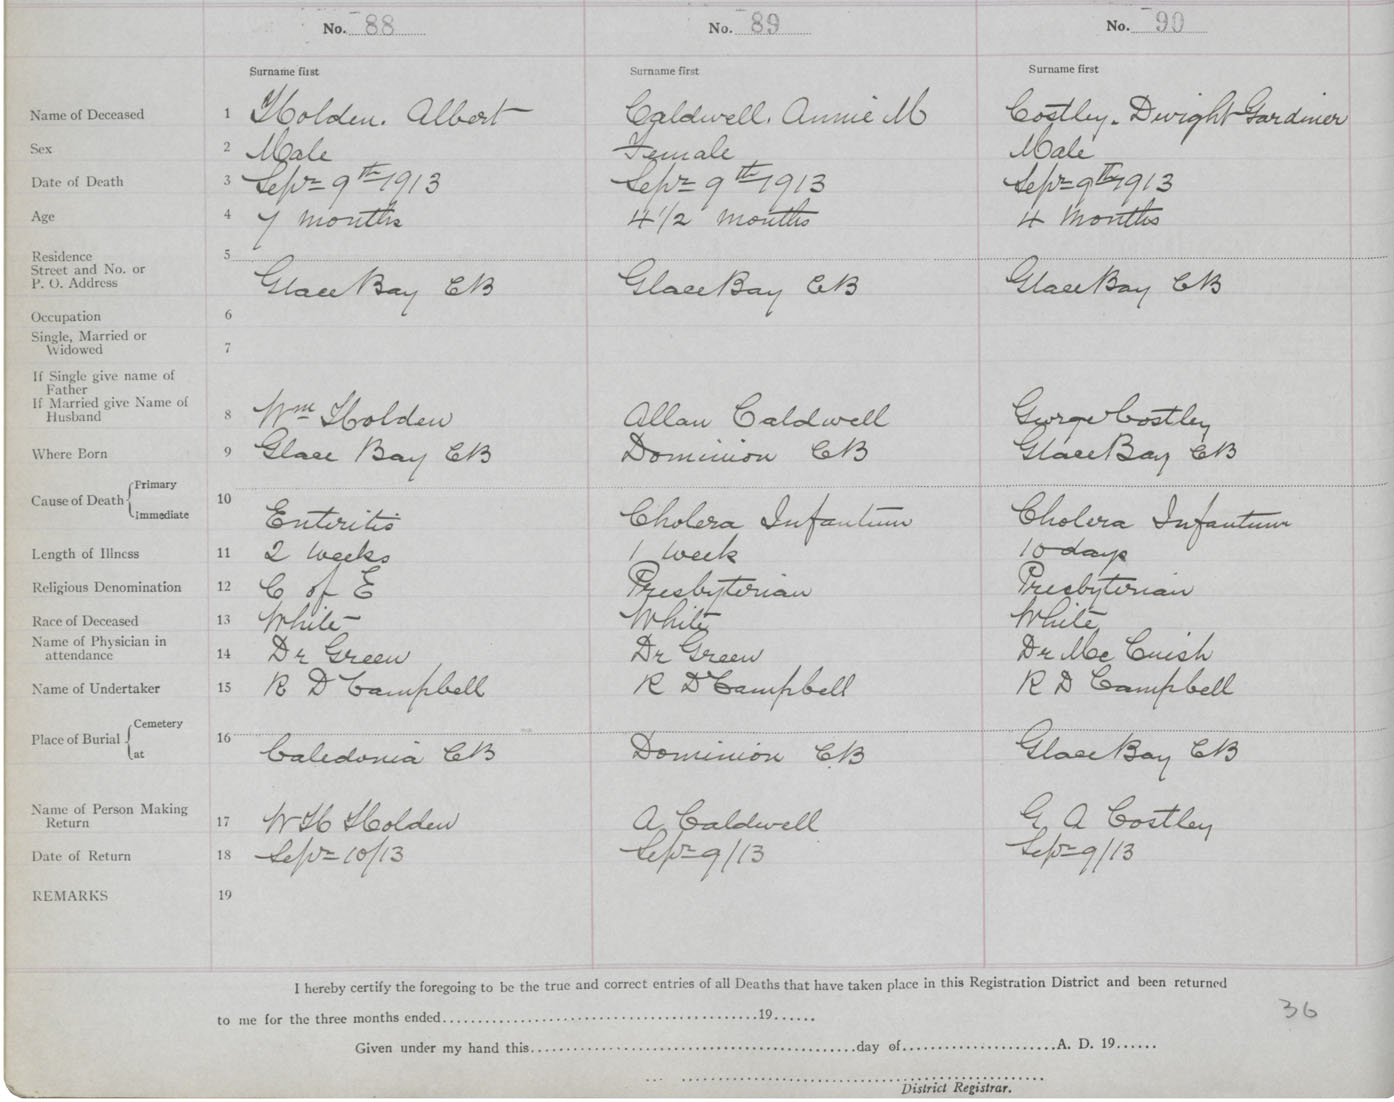 No. 88 No. 89 No. 90
Surname first Surname first Surname first
Name of Deceased 1 Holden. Albert Caldwell. Annie M Costley. Dwight Gardiner
Sex 2 Male Female Male
Date of Death 3 Sepr 9th 1913 Sepr 9th 1913 Sepr 9th 1913
Age 4 7 months 4 1/2 months 4 months
Residence 5
Street and No. or
P. O. Address Glace Bay CB Glace Bay CB Glace Bay CB
Occupation 6
Single, Married or
Widowed 7
If Single give name of
Father
If Married give Name of
Husband 8 Wm Holden Allan Caldwell George Costley
Where Born 9 Glace Bay CB Dominion CB Glace Bay CB
Cause of Death { Primary 10
Immediate Enteritis Cholera Infantum Cholera Infantum
Length of Illness 11 2 weeks 1 week 10 days
Religious Denomination 12 C of E Presbyterian Presbyterian
Race of Deceased 13 White White White
Name of Physician in
attendance 14 Dr Green Dr Green Dr Mc Cuish
Name of Undertaker 15 R D Campbell R D Campbell R D Campbell
Place of Burial { Cemetery 16
at Caledonia CB Dominion CB Glace Bay CB
Name of Person Making
Return 17 W H Holden A Caldwell G A Costley
Date of Return 18 Sepr 10/13 Sepr 9/13 Sepr 9/13
REMARKS 19
I hereby certify the foregoing to be the true and correct entries of all Deaths that have taken place in this Registration District and been returned
to me for the three months ended 19
36
Given under my hand this day of A. D. 19
District Registrar.